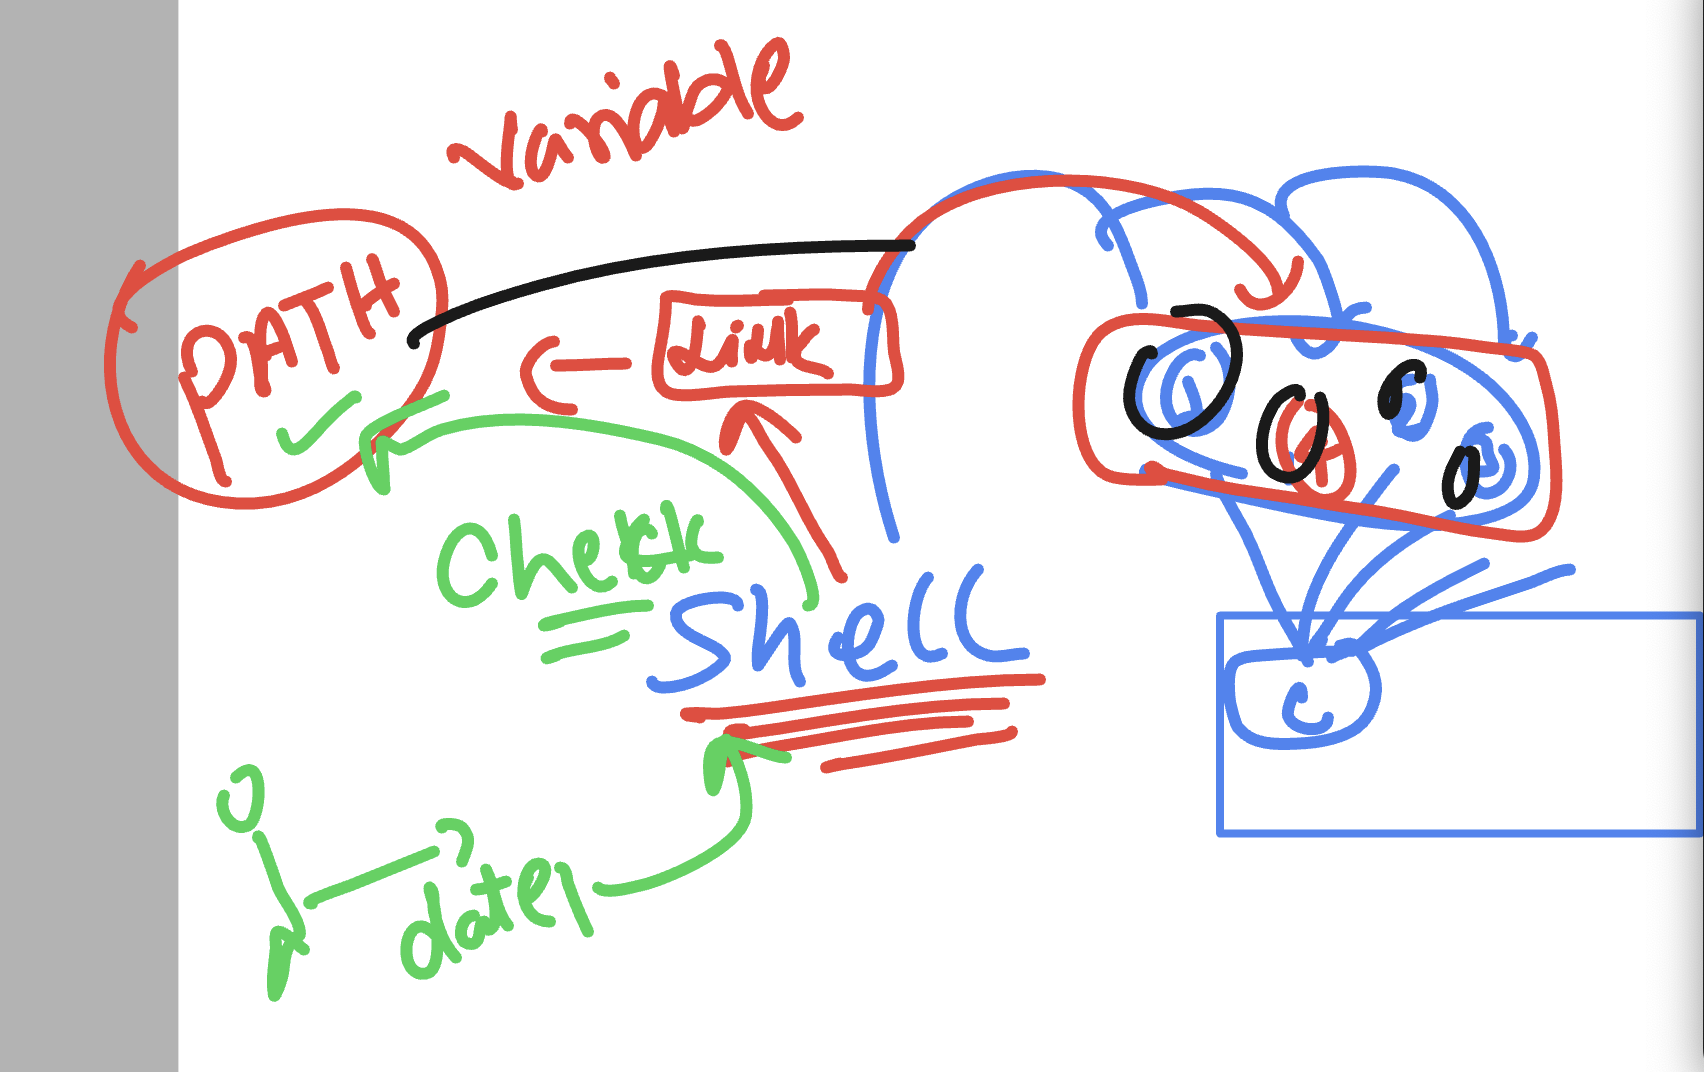 Variable
PATH
Link
Check
Shell
date